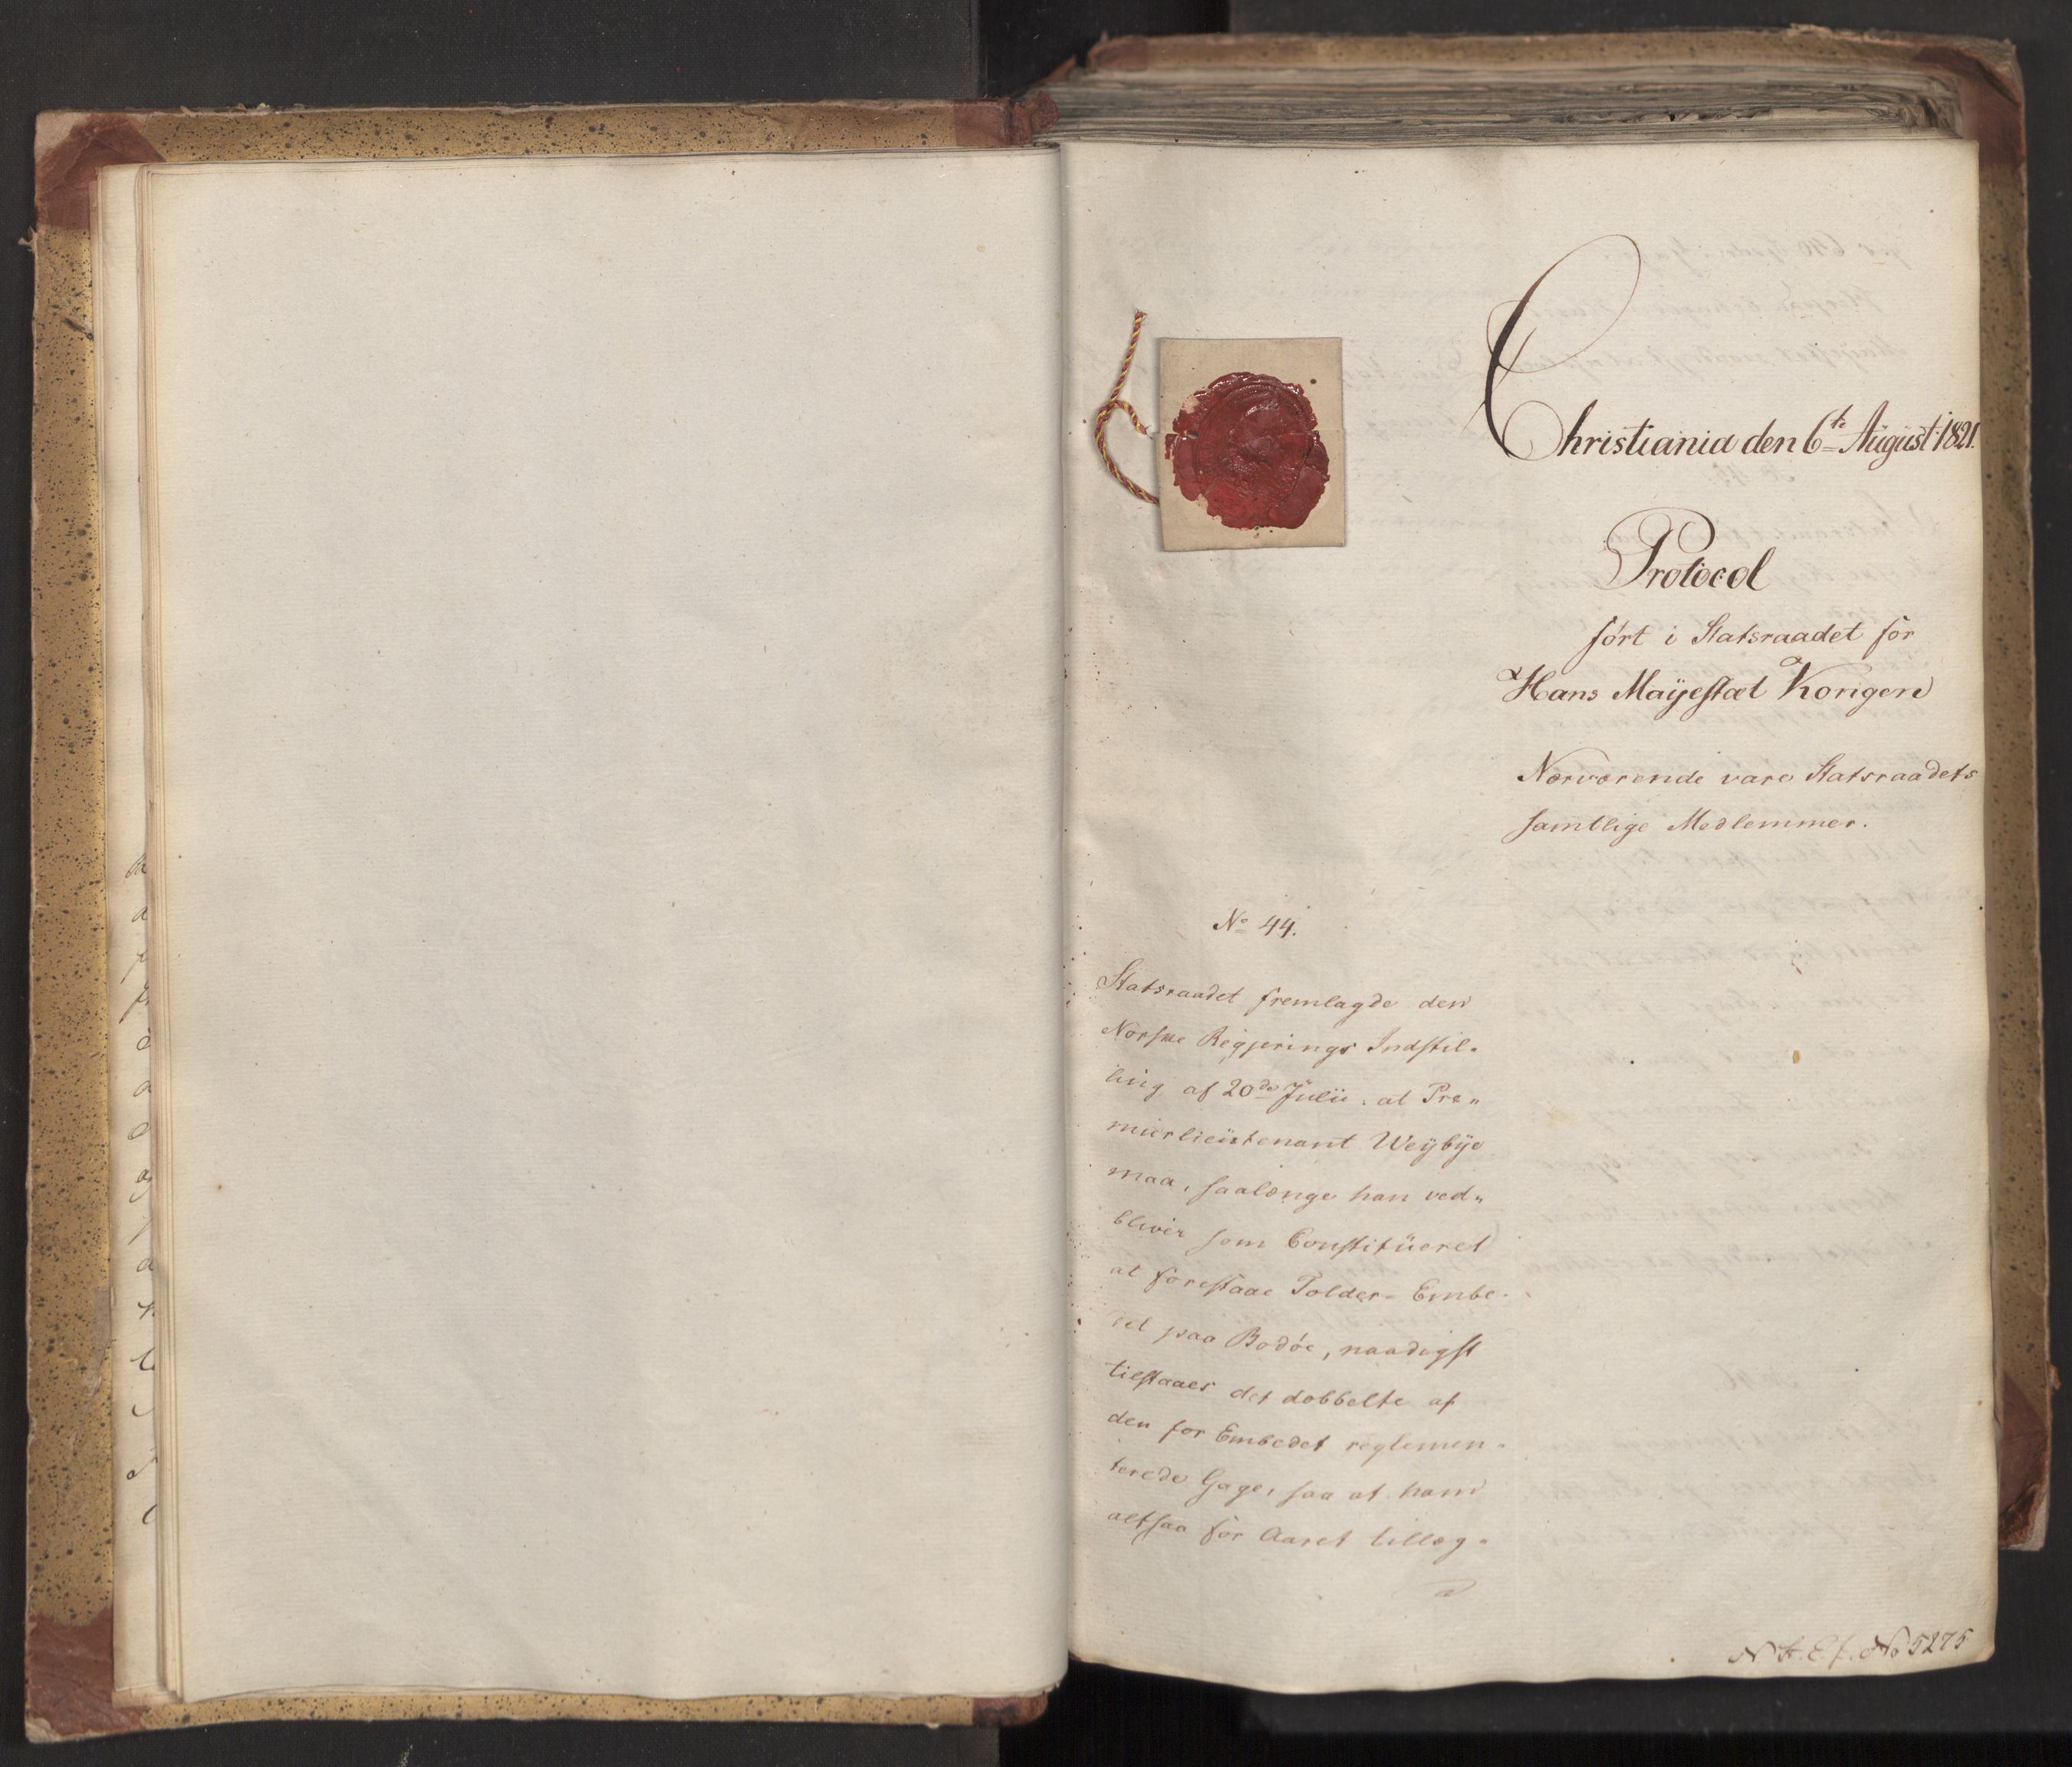 Christiania den 6te August 1821.
Protocol
ført i Statsraadet for
Hans Mayestæt Kongen
Nærværende vare Statsraadets
samtlige Medlemmer.
No 44.
Statsraadet fremlagde den
Norske Regjerings Indstil-
ling af 20de Julii, at Pre-
mierlieutenant Weybye
maa, saalænge han ved-
bliver som Constitueret
at forestaae Tolder-Embe-
det paa Bodøe, naadigst
tilstaaes det dobbelte af
den for Embedet reglemen-
terede Gage, saa at ham
altsaa for Aaret tillæg-
N. St. E. f. No 5275